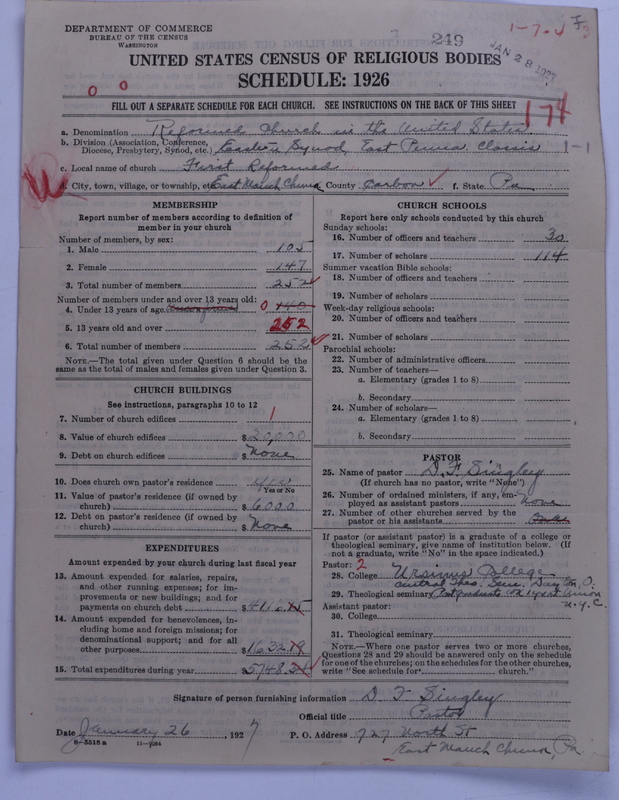 DEPARTMENT OF COMMERCE
BUREAU OF THE CENSUS
WASHINGTON
249
JAN 28 1927
UNITED STATES CENSUS OF RELIGIOUS BODIES
SCHEDULE: 1926
0 0
FILL OUT A SEPARATE SCHEDULE FOR EACH CHURCH. SEE INSTRUCTIONS ON THE BACK OF THIS SHEET
174
a. Denomination Reformed Church in the United States
b. Division (Association, Conference, Diocese, Presbytery, Synod, etc.) Eastern Synod, East Penna Classis 1-1
c. Local name of church First Reformed
d. City, town, village, or township, etc. East Mauch Chunk County Carbon f. State Pa
MEMBERSHIP
Report number of members according to definition of
member in your church
Number of members, by sex:
1. Male 105
2. Female 147
3. Total number of members 252
Number of members under and over 13 years old:
4. Under 13 years of age 0 140
5. 13 years old and over 252
6. Total number of members 252
NOTE.—The total given under Question 6 should be the
same as the total of males and females given under Question 3.
CHURCH BUILDINGS
See instructions, paragraphs 10 to 12
7. Number of church edifices 1
8. Value of church edifices $
9. Debt on church edifices $ None
10. Does church own pastor's residence
Yes or No
11. Value of pastor's residence (if owned by
church) $ 6000
12. Debt on pastor's residence (if owned by
church) $ None
EXPENDITURES
Amount expended by your church during last fiscal year
13. Amount expended for salaries, repairs,
and other running expenses; for im-
provements or new buildings; and for
payments on church debt $
14. Amount expended for benevolences, in-
cluding home and foreign missions; for
denominational support; and for all
other purposes $ 1632
15. Total expenditures during year $ 5748
CHURCH SCHOOLS
Report here only schools conducted by this church
Sunday schools:
16. Number of officers and teachers 30
17. Number of scholars 114
Summer vacation Bible schools:
18. Number of officers and teachers
19. Number of scholars
Week-day religious schools:
20. Number of officers and teachers
21. Number of scholars
Parochial schools:
22. Number of administrative officers
23. Number of teachers—
a. Elementary (grades 1 to 8)
b. Secondary
24. Number of scholars—
a. Elementary (grades 1 to 8)
b. Secondary
PASTOR
25. Name of pastor D. F. Singley
(If church has no pastor, write "None")
26. Number of ordained ministers, if any, em-
ployed as assistant pastors None
27. Number of other churches served by the
pastor or his assistants
If pastor (or assistant pastor) is a graduate of a college or
theological seminary, give name of institution below. (If
not a graduate, write "No" in the space indicated.)
Pastor: 2
28. College Ursinus College
Central Theo. Sem. Dayton, O.
29. Theological seminary Post graduate Union
N.Y.C.
Assistant pastor:
30. College
31. Theological seminary
NOTE.—Where one pastor serves two or more churches,
Questions 28 and 29 should be answered only on the schedule
for one of the churches; on the schedules for the other churches,
write "See schedule for church."
Signature of person furnishing information D. F. Singley
Official title Pastor
Date January 26, 1927 P. O. Address 727 North St
8-5518a 11-9064
East Mauch Chunk, Pa